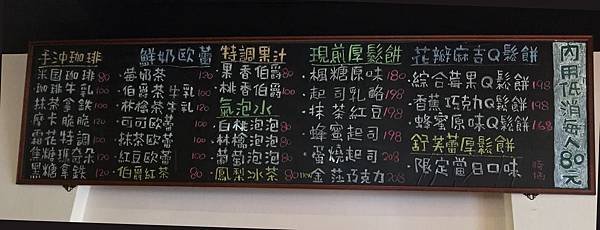 手沖珈琲
米国珈琲 80
珈琲牛乳 100
抹茶拿鐵 100
摩卡脆脆 120
霜花特調 100
焦糖瑪奇朵 100
黑糖拿鐵 100
鮮奶歐蕾
·薔奶茶 120
·伯爵茶牛乳 100
·林檎茶牛乳 100
·可可歐蕾 100
·抹茶歐蕾 100
·紅豆歐蕾 100
·伯爵紅茶 80
特調果汁
·果香伯爵 80
·桃香伯爵 80
氣泡水
·白桃泡泡 80
·林檎泡泡 80
·葡萄泡泡 80
鳳梨冰茶 80 new
現煎厚鬆餅
·楓糖原味 180
·起司乳酪 198
·抹茶紅豆 198
·蜂蜜起司 198
·蛋燒起司 208
·金莎巧克力 208
花瓣麻吉Q鬆餅
·綜合莓果Q鬆餅 198
·香蕉巧克力Q鬆餅 198
·蜂蜜原味Q鬆餅 168
舒芙蕾厚鬆餅
·限定當日口味 時價
內用低消每人80元